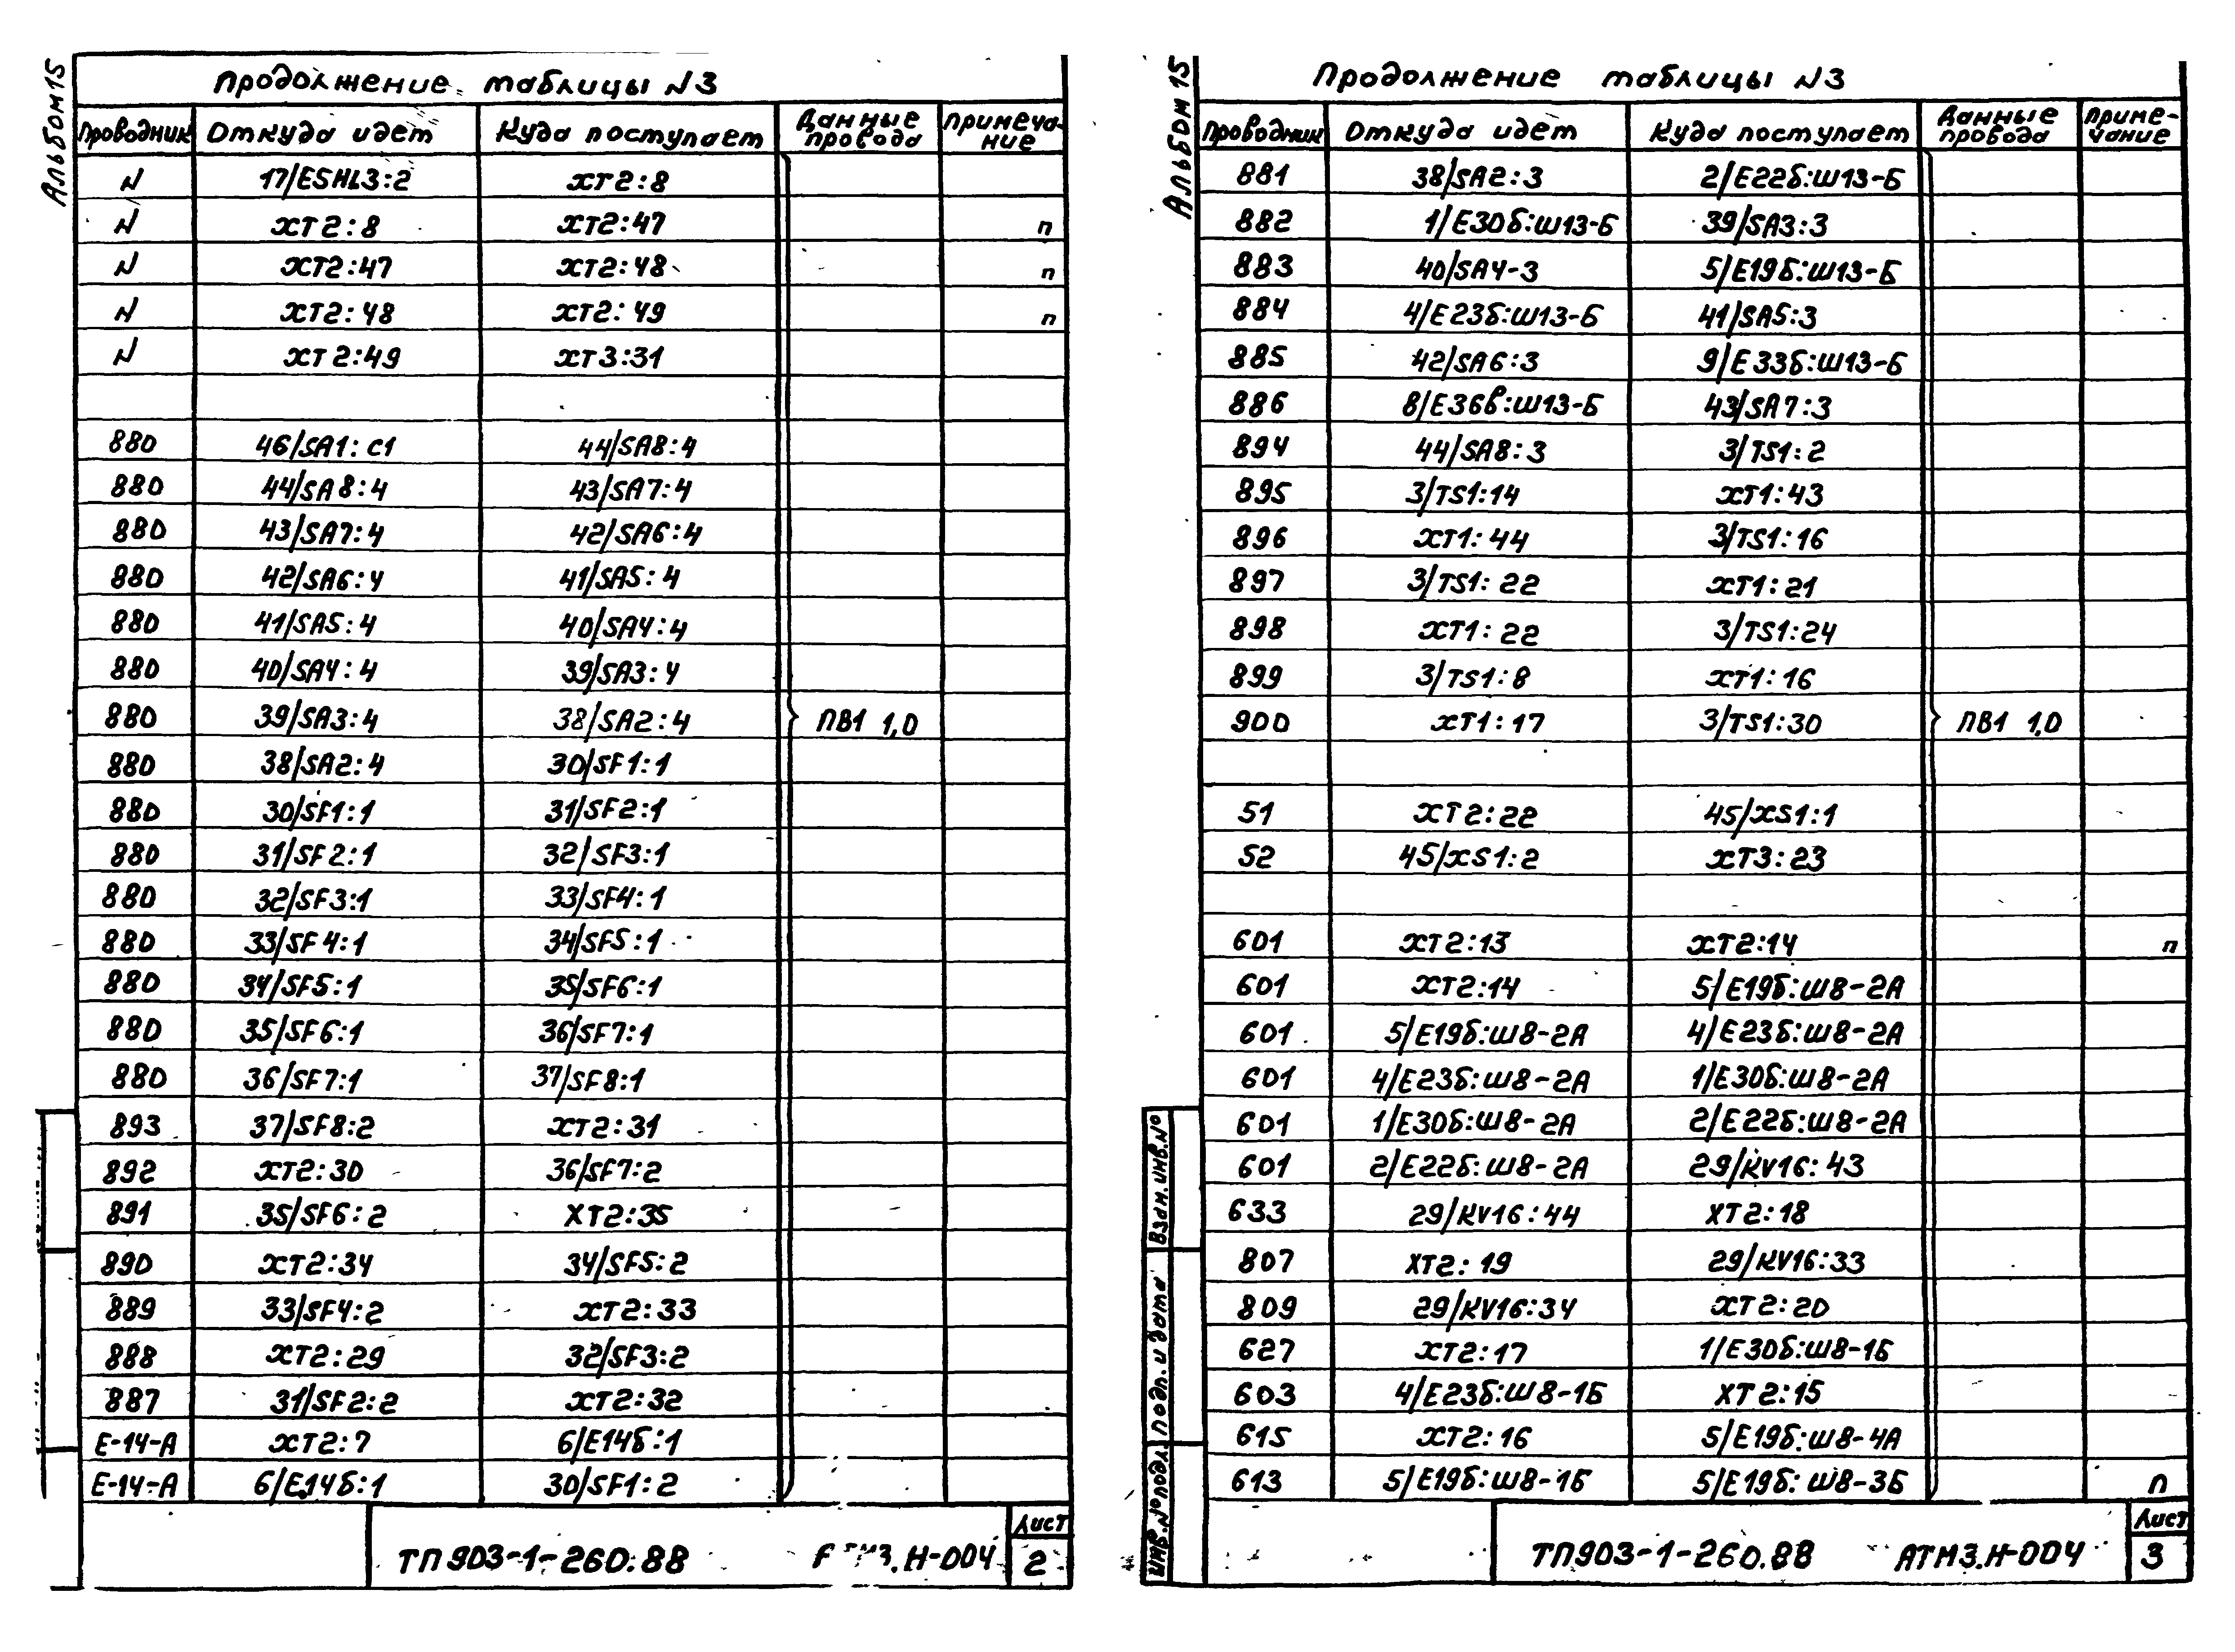 Альбом 15
Продолжение таблицы N3
Проводник Откуда идет Куда поступает Данные провода Примечание
N 17/ESHL3:2 XT2:8
N XT2:8 XT2:47 п
N XT2:47 XT2:48 п
N XT2:48 XT2:49 п
N XT2:49 XT3:31
880 46/SA1:C1 44/SA8:4
880 44/SA8:4 43/SA7:4
880 43/SA7:4 42/SA6:4
880 42/SA6:4 41/SA5:4
880 41/SA5:4 40/SA4:4
880 40/SA4:4 39/SA3:4
880 39/SA3:4 38/SA2:4 ПВ1 1,0
880 38/SA2:4 30/SF1:1
880 30/SF1:1 31/SF2:1
880 31/SF2:1 32/SF3:1
880 32/SF3:1 33/SF4:1
880 33/SF4:1 34/SF5:1
880 34/SF5:1 35/SF6:1
880 35/SF6:1 36/SF7:1
880 36/SF7:1 37/SF8:1
893 37/SF8:2 XT2:31
892 XT2:30 36/SF7:2
891 35/SF6:2 XT2:35
890 XT2:34 34/SF5:2
889 33/SF4:2 XT2:33
888 XT2:29 32/SF3:2
887 31/SF2:2 XT2:32
E-14-A XT2:7 6/E14б:1
E-14-A 6/E14б:1 30/SF1:2
ТП903-1-260.88 М3.Н-004 Лист 2
Альбом 15
Продолжение таблицы N3
Проводник Откуда идет Куда поступает Данные провода Примечание
881 38/SA2:3 2/E22б:Ш13-Б
882 1/E30б:Ш13-Б 39/SA3:3
883 40/SA4-3 5/E19б:Ш13-Б
884 4/E23б:Ш13-Б 41/SA5:3
885 42/SA6:3 9/E33б:Ш13-Б
886 8/E36в:Ш13-Б 43/SA7:3
894 44/SA8:3 3/TS1:2
895 3/TS1:14 XT1:43
896 XT1:44 3/TS1:16
897 3/TS1:22 XT1:21
898 XT1:22 3/TS1:24
899 3/TS1:8 XT1:16
900 XT1:17 3/TS1:30 ПВ1 1,0
51 XT2:22 45/XS1:1
52 45/XS1:2 XT3:23
601 XT2:13 XT2:14 п
601 XT2:14 5/E19б:Ш8-2А
601 5/E19б:Ш8-2А 4/E23б:Ш8-2А
601 4/E23б:Ш8-2А 1/E30б:Ш8-2А
601 1/E30б:Ш8-2А 2/E22б:Ш8-2А
601 2/E22б:Ш8-2А 29/KV16:43
633 29/KV16:44 XT2:18
807 XT2:19 29/KV16:33
809 29/KV16:34 XT2:20
627 XT2:17 1/E30б:Ш8-1Б
603 4/E23б:Ш8-1Б XT2:15
615 XT2:16 5/E19б:Ш8-4А
613 5/E19б:Ш8-1Б 5/E19б:Ш8-3Б п
Взам.инв.N°
Подп. и дата
Инв.N°подл.
ТП903-1-260.88 АТМ3.Н-004 Лист 3